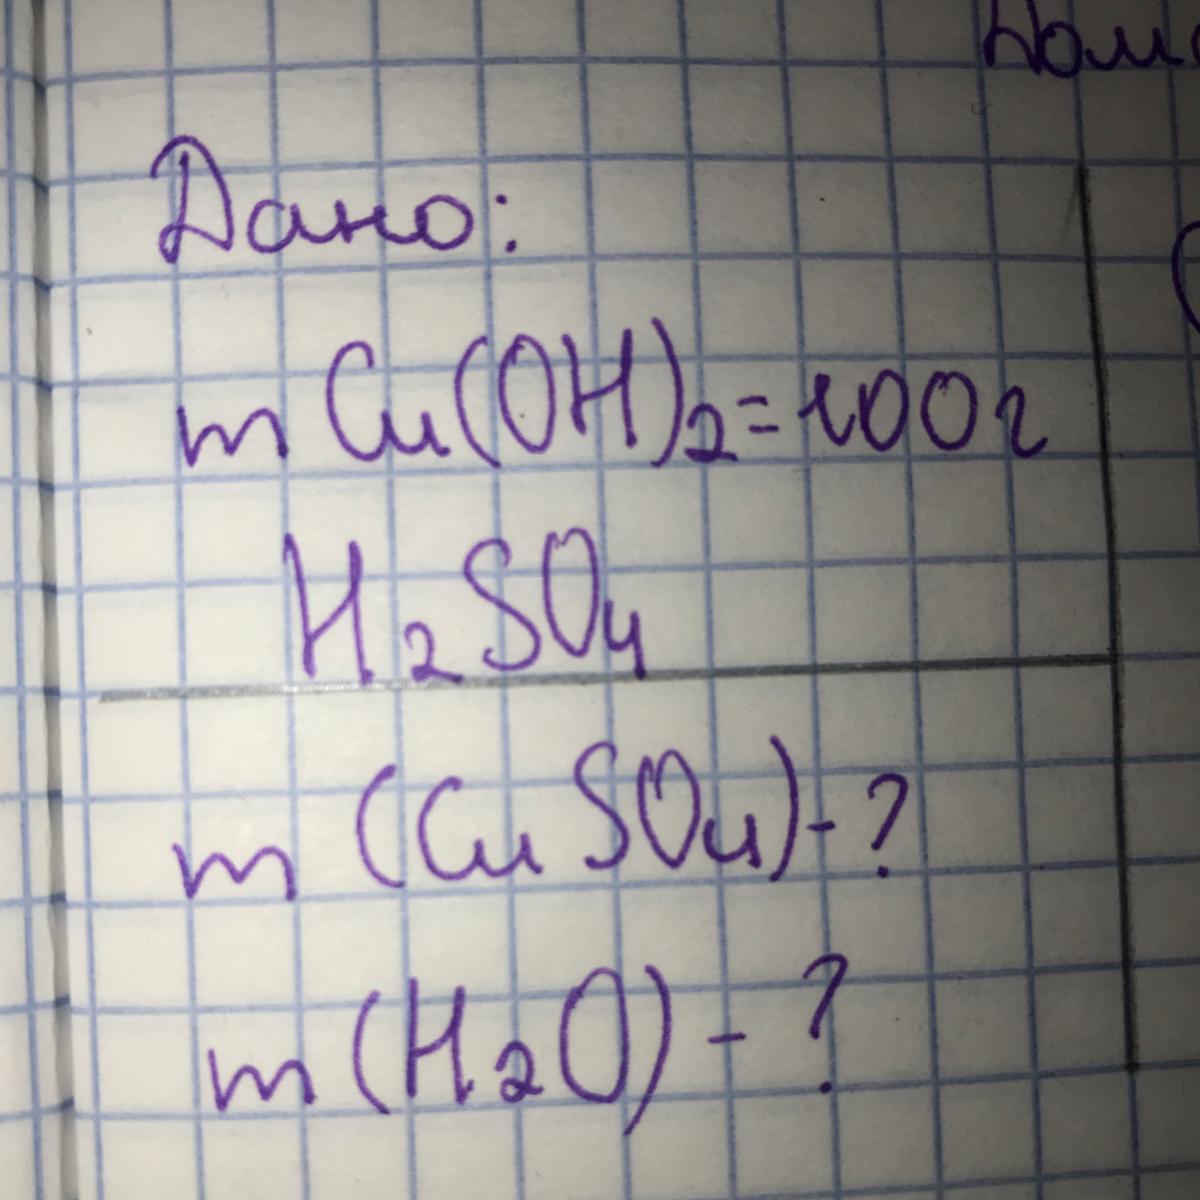 Дано:
m Cu(OH)₂=100г
H₂SO₄
m (CuSO₄)-?
m (H₂O)-?